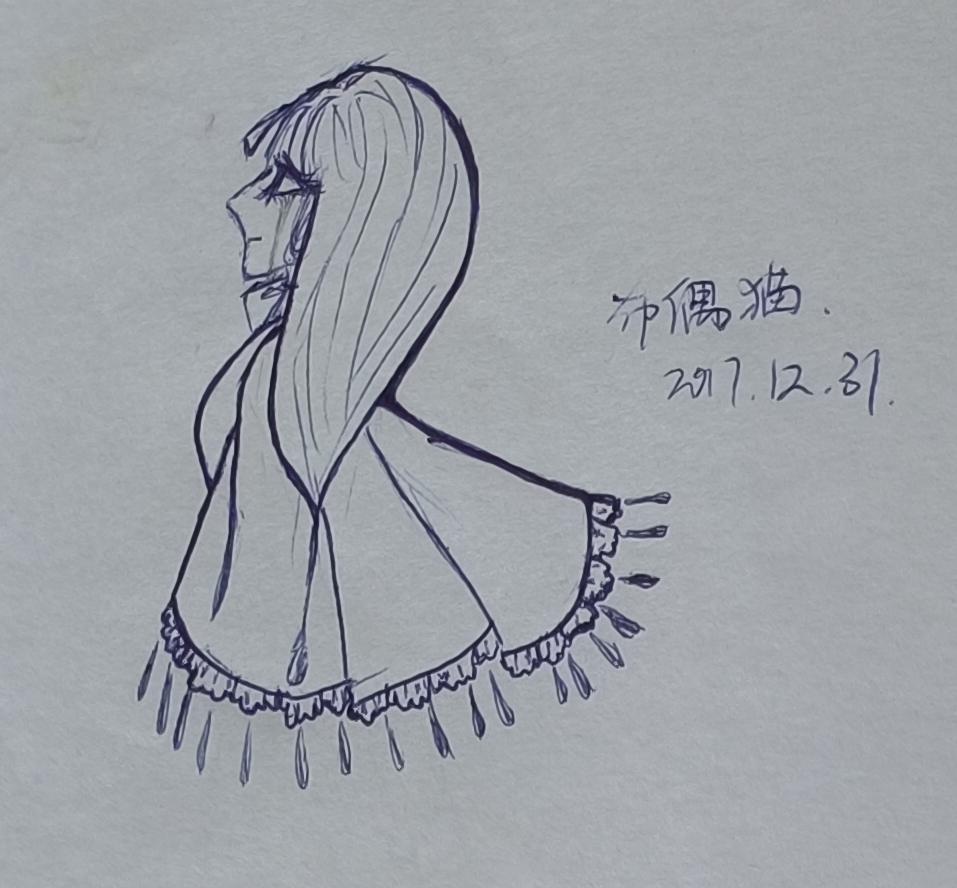 布偶猫.
2017.12.31.